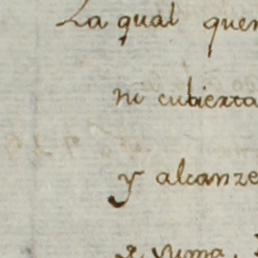 La qual quen
ni cubierta
y alcanze